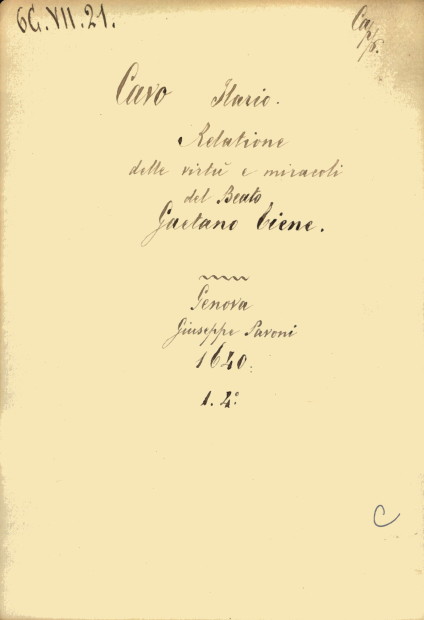 6G.VII.21.
Cavo Ilario.
Relatione
delle virtù e miracoli
del Beato
Gaetano Tiene.
Genova
Giuseppe Pavoni
1640.
1. 4°
C